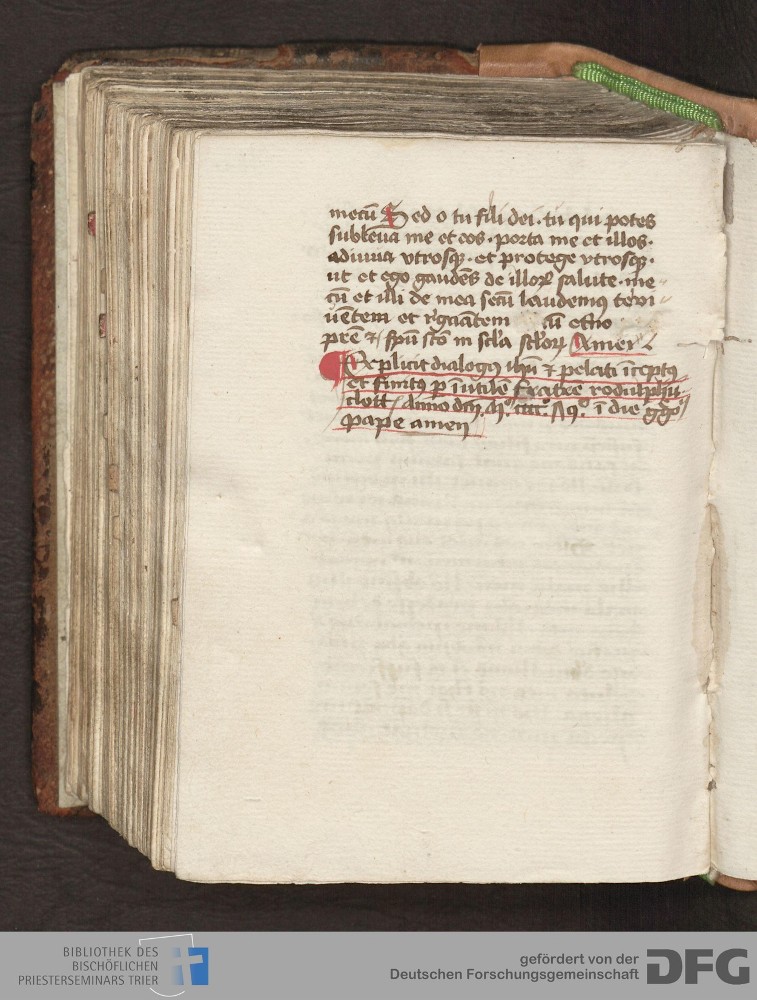 mecū Sed o tu fili dei · tu qui potes
subleua me et eos · porta me et illos ·
adiuua vtrosqꝫ · et protege vtrosqꝫ ·
ut et ego gaudēs de illoꝝ salute · me
cū et illi de mea secū laudemus te vi
uētem et rgnātem cū eterno
pre ⁊ spū scō in scla scloꝝ Amen
Explicit dialogus ihū ⁊ peccati īceptus
et finitus p īutilē fratrē rodulphū
Anno dni mº cccc º ī die ggorꝰ
pape amen
BIBLIOTHEK DES
BISCHÖFLICHEN
PRIESTERSEMINARS TRIER
gefördert von der
Deutschen Forschungsgemeinschaft DFG